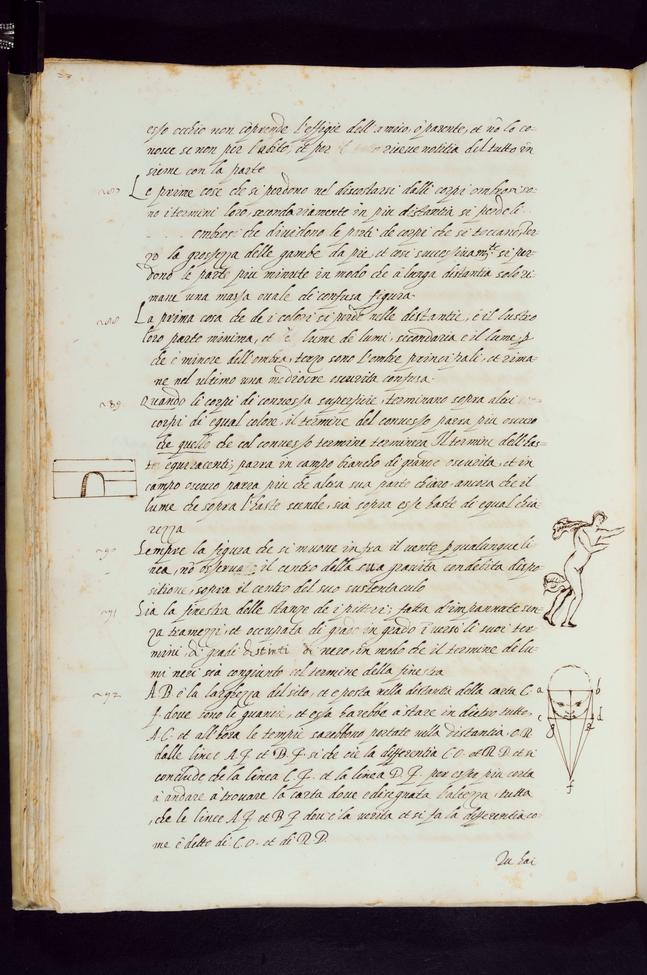 esso occhio non co̅prende l'effigie dell'amico, ò parente, et no̅ lo co-
nosce se non per l'abito, et per riceve notitia del tutto in
sieme con la parte
Le prime cose che si perdono nel discostarsi dalli corpi ombrosi so-
no i termini loro, secondariamente in piu distantia si perde li
ombrosi che dividono le parti de corpi che si toccano, ter
zo la grossezza delle gambe da pie, et cosi successivam.te si per-
dono le parti piu minute in modo che à lunga distantia solo ri
mane una massa ovale di confusa figura.
La prima cosa che de i colori si perde nelle distantie, è il lustro
loro parte minima, et è lume de lumi, secondaria è il lume, p
che è minore dell'ombra, terzo sono l'ombre principali, et rima-
ne nel ultimo una mediocre oscurita confusa.
Quando li corpi di convessa superficie, terminano sopra altri
corpi di egual colore, il termine del convesso parra piu oscuro
che quello che col convesso termine terminera. Il termine dell'has-
te parra in campo bianco di grande oscurita, et in
campo oscuro parra piu che altra sua parte chiaro, ancora che il
lume che sopra l'haste scende, sia sopra esse haste di egual chia
rezza
Sempre la figura che si muove infra il vento p qualunque li
nea, no̅ osserva il centro della sua gravita con debita dispo
sitione, sopra il centro del suo sustentaculo
Sia la finestra delle stanze de i pittori, fatta d'impannate sen
za tramezzi, et occupata di grado in grado i̅verso li suoi ter
mini, di gradi distinti di nero, in modo che il termine de lu-
mi neri sia congiunto col termine della finestra
A B è la larghezza del sito, et è posta nella distantia della carta C
F. dove sono le guancie, et essa harebbe à stare in dietro tutto
A C. et all'hora le tempie sarebbono portate nella distantia O R
dalle linee A F. et B F. si che cie la differentia C O. et R D. et si
conclude che la linea C F. et la linea D F. per esser piu corta
à andare à trovare la carta dove è disegnata l'altezza tutta
che le linee A F. et B F dov'è la verita et si fa la differentia co-
me è detto di C O. et di R D.
Tu hai
a b
c d
f